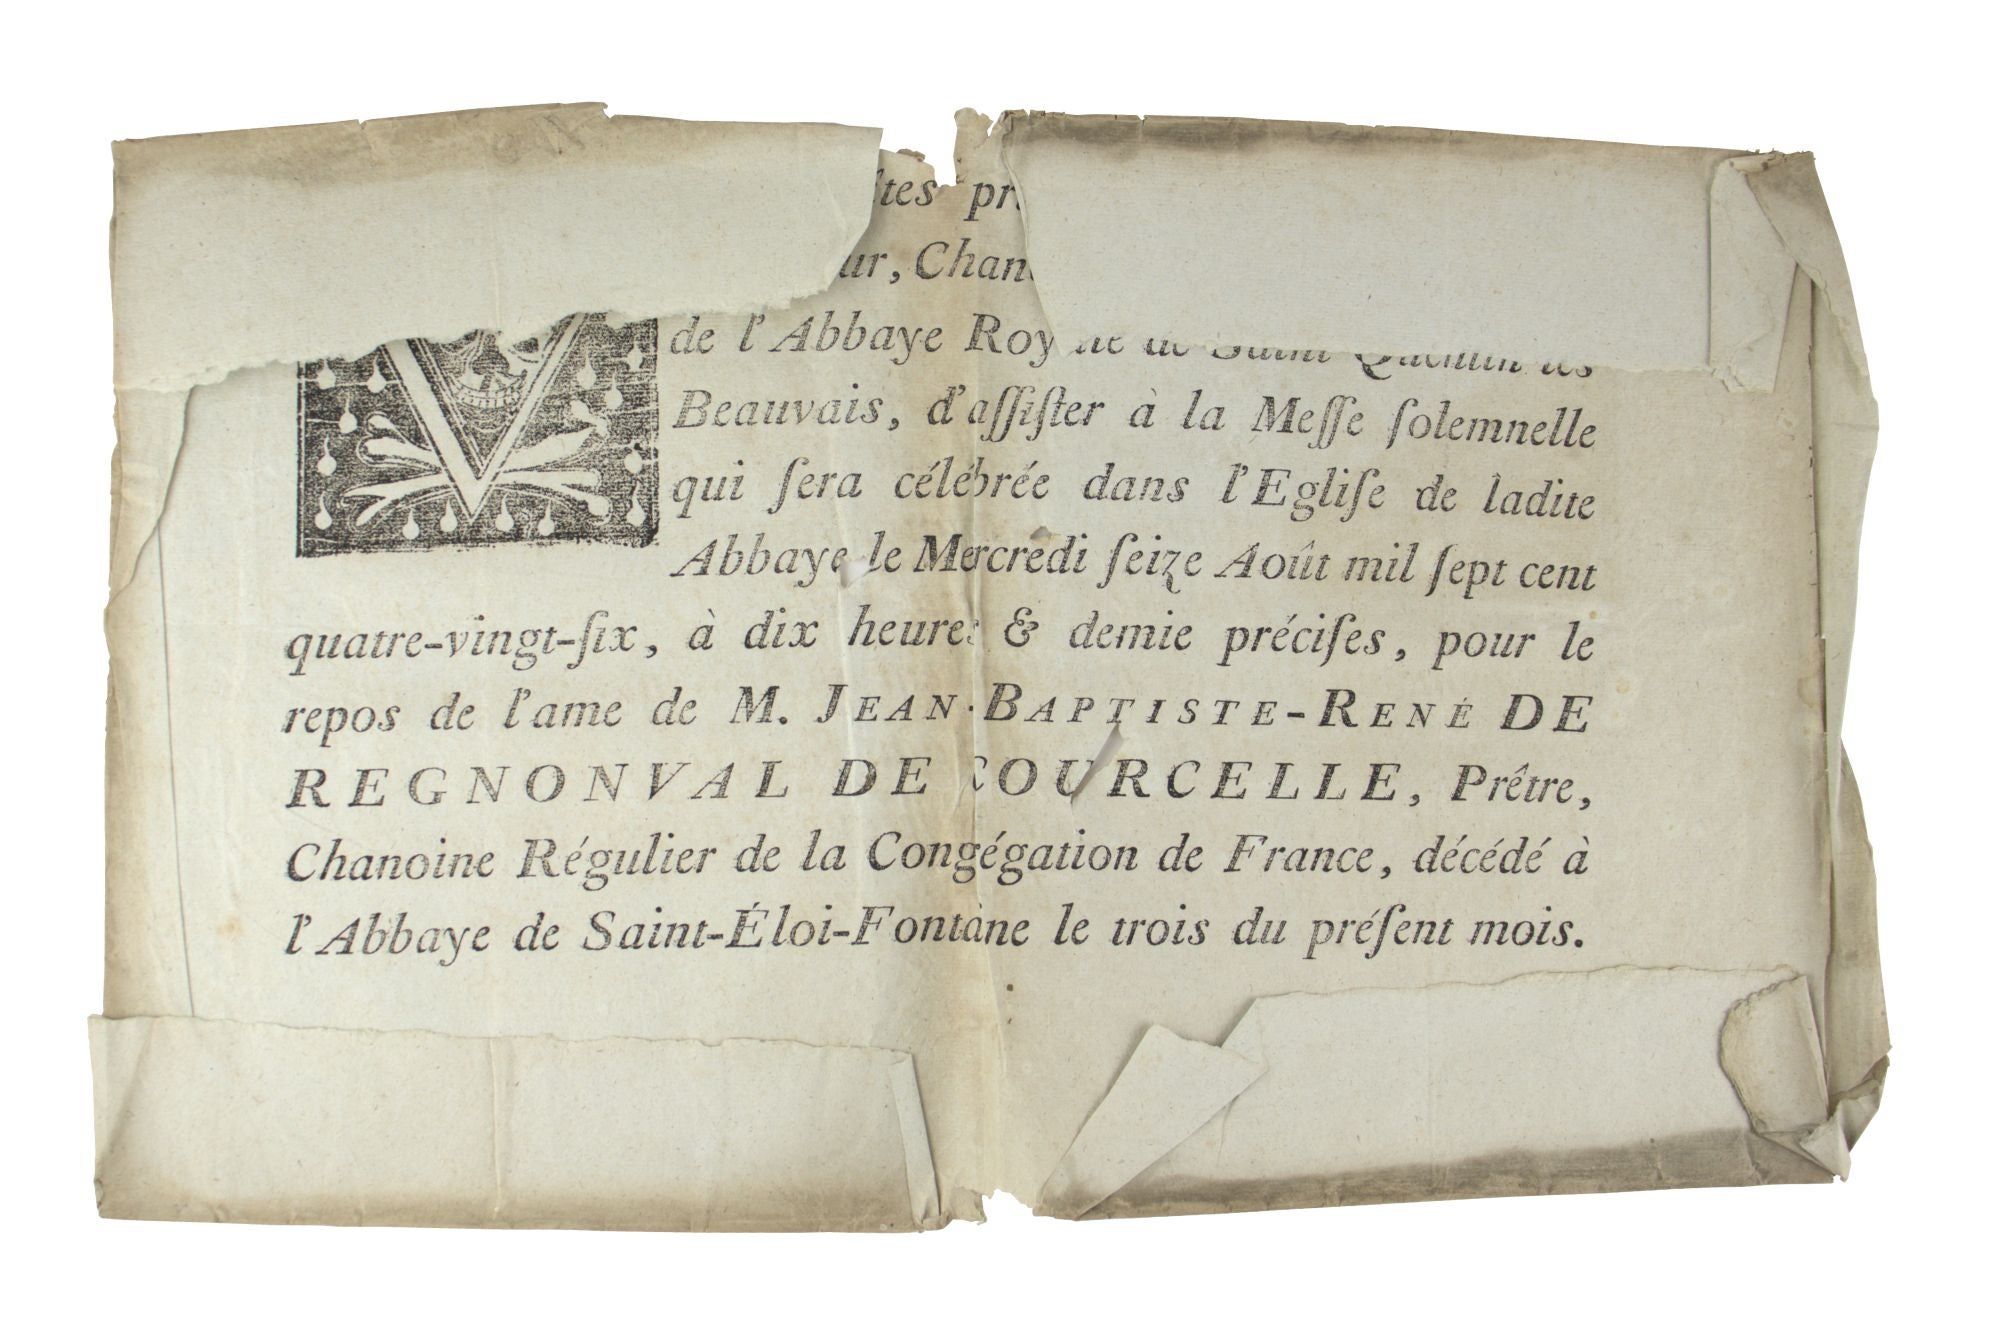 de l'Abbaye
Beauvais, d'aſſiſter à la Meſſe ſolemnelle
qui ſera célébrée dans l'Egliſe de ladite
Abbaye le Mercredi ſeize Août mil ſept cent
quatre-vingt-ſix, à dix heures & demie préciſes, pour le
repos de l'ame de M. JEAN-BAPTISTE-RENÉ DE
REGNONVAL DE COURCELLE, Prêtre,
Chanoine Régulier de la Congégation de France, décédé à
l'Abbaye de Saint-Éloi-Fontane le trois du préſent mois.